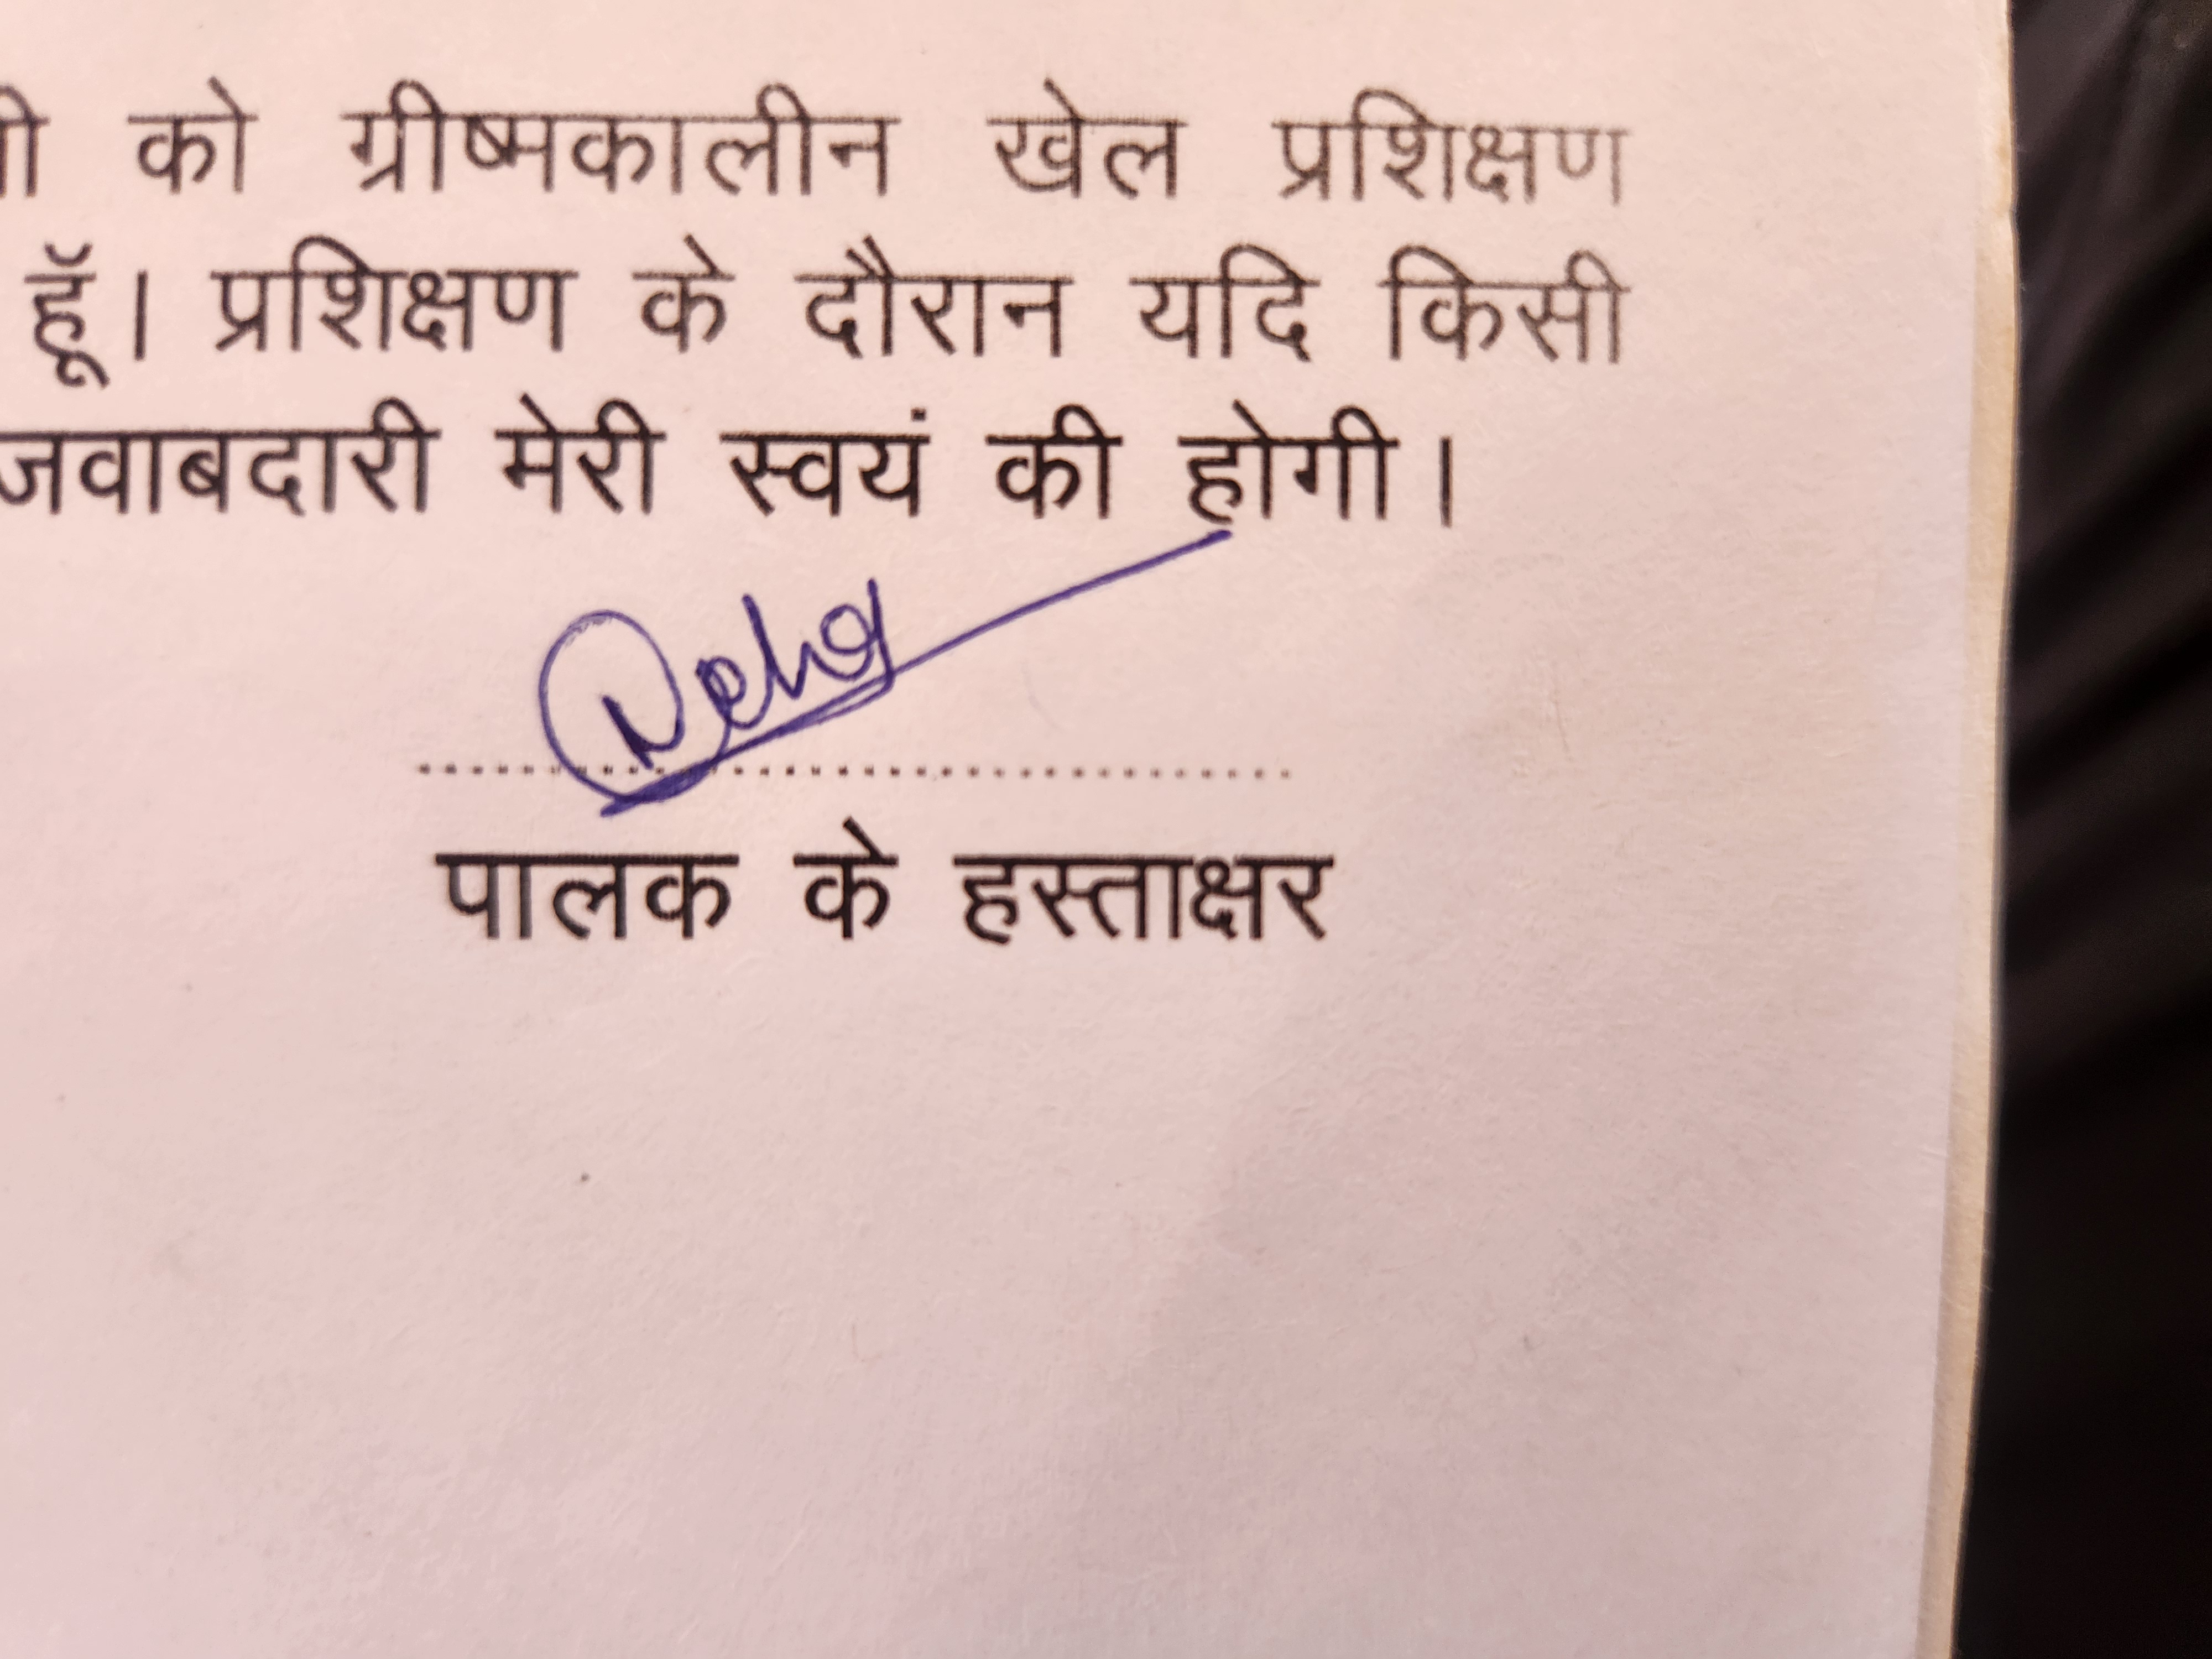 को ग्रीष्मकालीन खेल प्रशिक्षण
हूॅ। प्रशिक्षण के दौरान यदि किसी
जवाबदारी मेरी स्वयं की होगी।
Neha
पालक के हस्ताक्षर